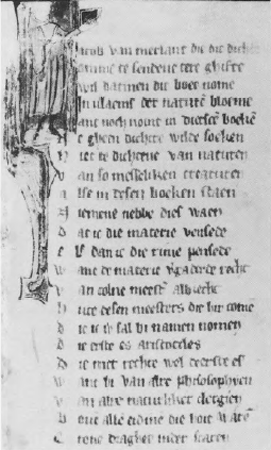 Jacob van merlant die dit dichte
omme te sendene tere ghifte
wil datmen dit boec nome
In vlaems der naturen bloeme
want noch noint in dietscen boeken
n e gheen dichtre wilde soeken
h iet te dichtene van naturen
v an so messeliken creaturen
a lse in desen boeken staen
N iemene hebbe dies waen
D at ic die materie vensede
e lf dan ic die rime pensede
w ant de materie vgaderde recht
v an colne meestr albrecht
h ute desen meesters die hir come
D ie ic v sal bi namen nomen
D ie erste es aristotiles
D ie met rechte wel deerste es
w ant hi van allre philosophyen
v an alre naturliker clergien
B oue alle eidine die hoit waren
C rone draghet inder scaren